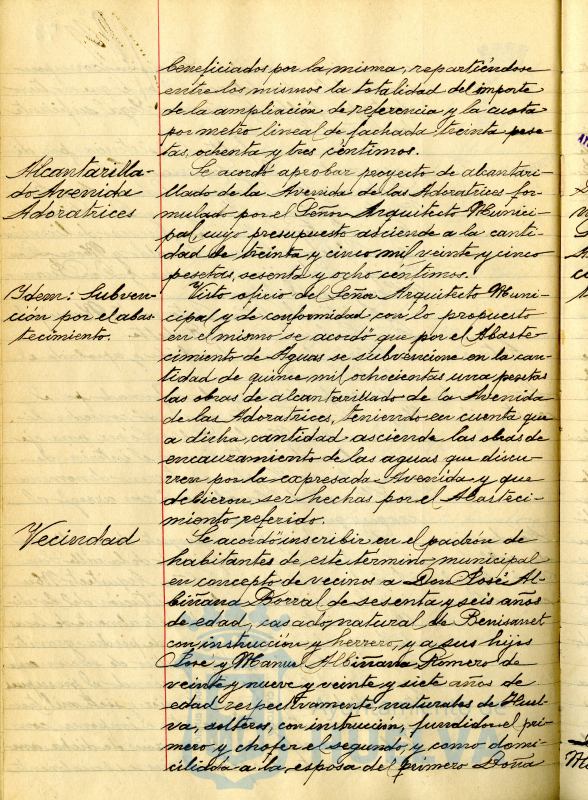 beneficiados por la misma, repartiéndose
entre los mismos la totalidad del importe
de la ampliación de referencia y la cuota
por metro lineal de fachada treinta pese-
tas, ochenta y tres céntimos.
Alcantarilla-
do Avenida
Adoratrices
Se acordó aprobar proyecto de alcantari-
llado de la Avenida de las Adoratrices for-
mulado por el Señor Arquitecto Munici-
pal cuyo presupuesto asciende a la canti-
dad de treinta y cinco mil veinte y cinco
pesetas, sesenta y ocho céntimos.
Idem: Subven-
ción por el abas-
tecimiento.
Visto oficio del Señor Arquitecto Muni-
cipal y de conformidad con lo propuesto
en el mismo se acordó que por el Abaste-
cimiento de Aguas se subvencione en la can-
tidad de quince mil ochocientas una pesetas
las obras de alcantarillado de la Avenida
de las Adoratrices, teniendo en cuenta que
a dicha cantidad asciende las obras de
encauzamiento de las aguas que discu-
rren por la expresada Avenida y que
debieron ser hechas por el Abasteci-
miento referido.
Vecindad
Se acordó inscribir en el padrón de
habitantes de este término municipal
en concepto de vecinos a Don José Al-
biñana Borral de sesenta y seis años
de edad, casado, natural de Benisanet
con instrucción y herrero, y a sus hijos
José y Manuel Albiñana Romero de
veinte y nueve y veinte y siete años de
edad respectivamente, naturales de Huel-
va, solteros, con instrucción, fundidor el pri-
mero y chofer el segundo, y como domi-
ciliada a la esposa del primero Doña